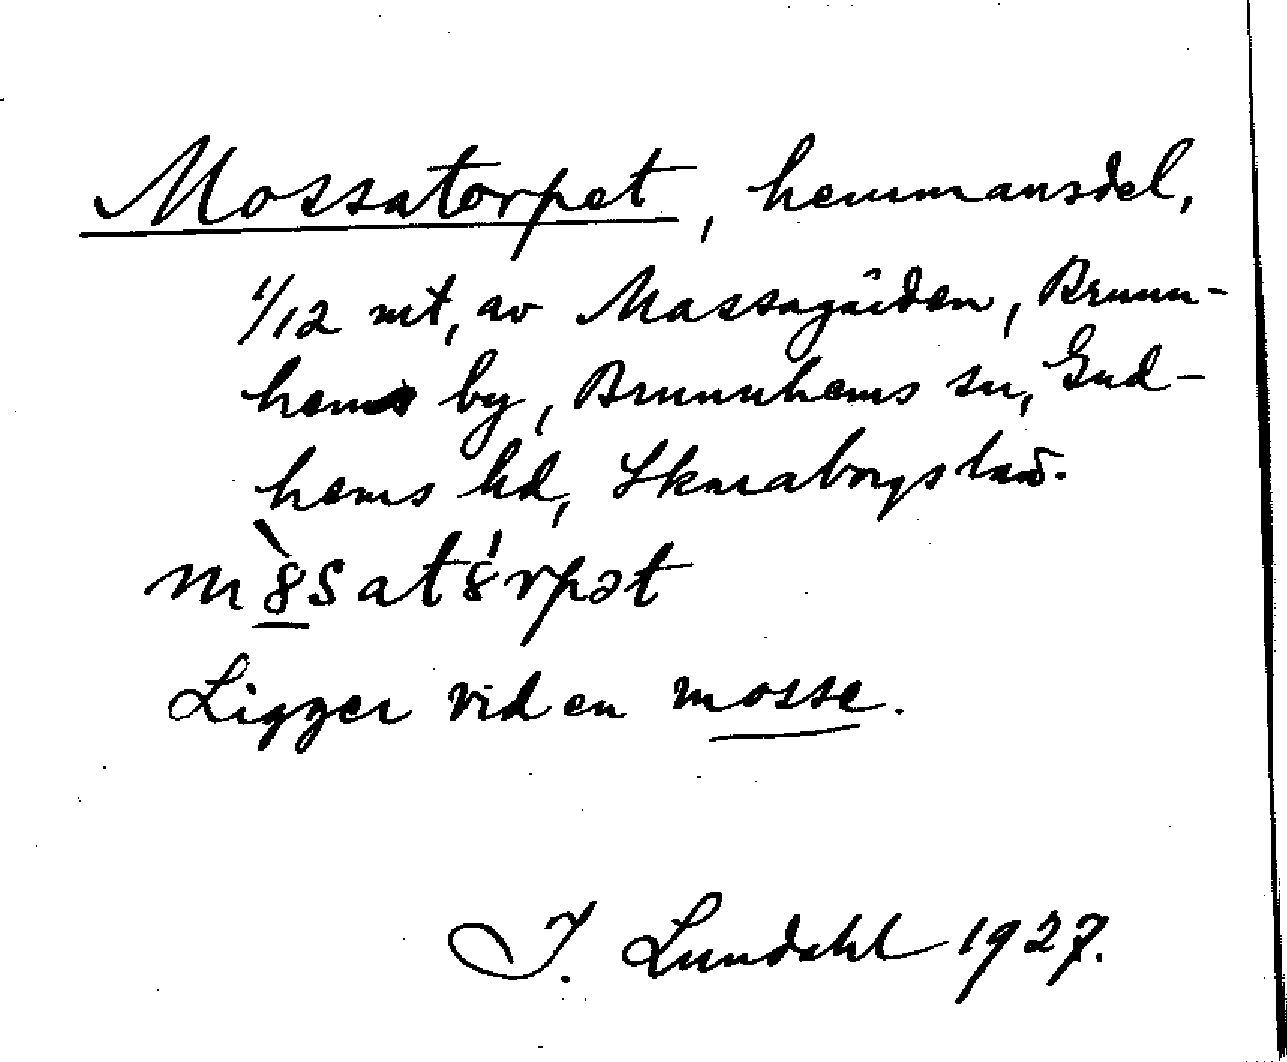 Mossatorpet, hemmansdel,
1/12 mt, av Massagården, Brunn-
hems by, Brunnhems sn, Gud-
hems hd, Skaraborgs län.
m8̀sat8́rpət
Ligger vid en mosse.
I. Lundahl 1927.